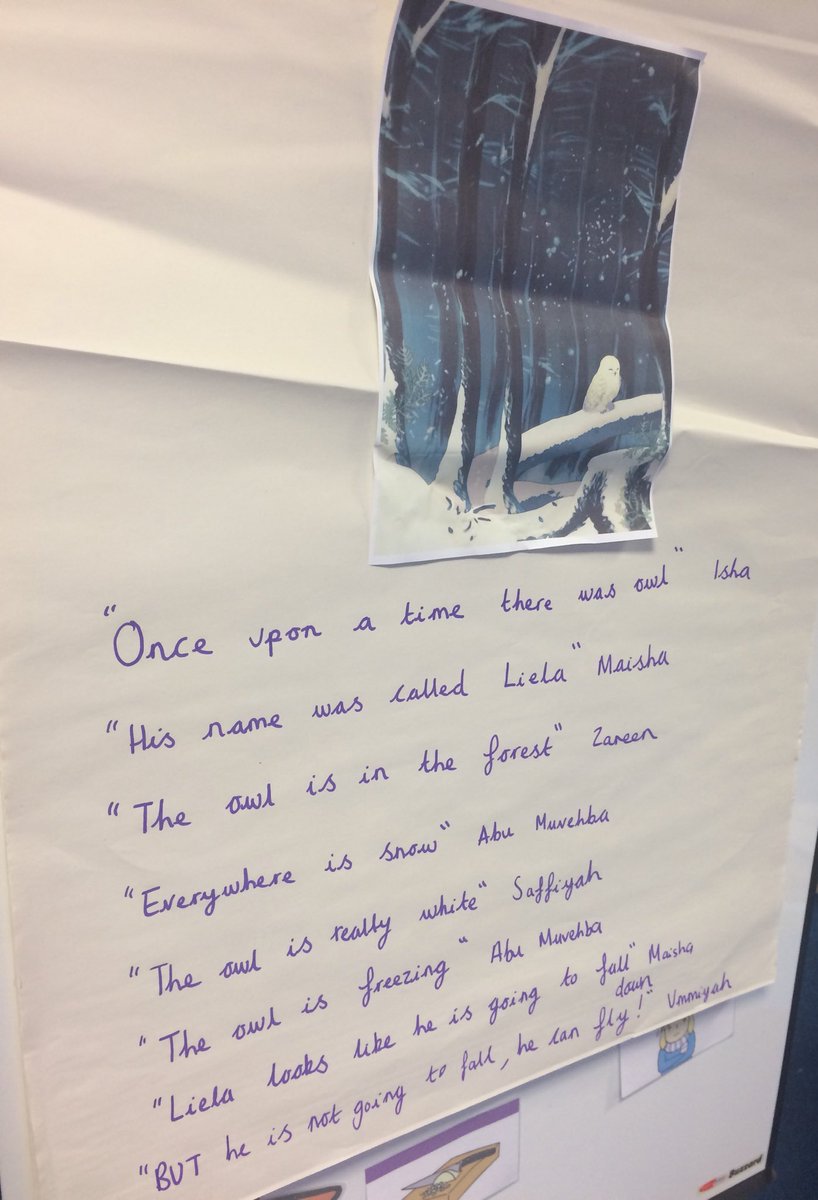 "Once upon a time there was owl" Isha
"His name was called Liela" Maisha
"The owl is in the forest" Zareen
"Everywhere is snow" Abu Muvehba
"The owl is really white" Saffiyah
"The owl is freezing" Abu Muvehba
"Liela looks like he is going to fall" Maisha
down
"BUT he is not going to fall, he can fly!" Ummiyah
Buzzard